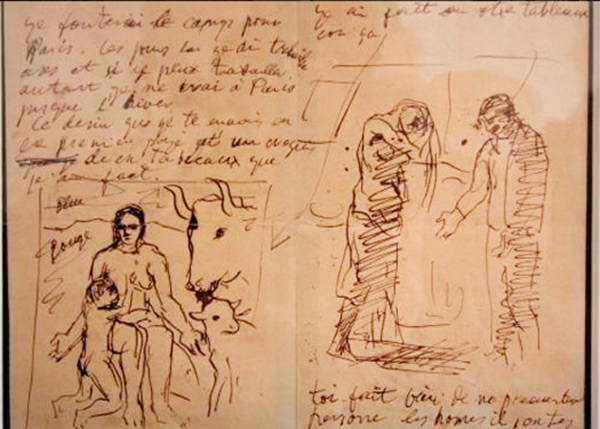 ge fouterai le camps pour
Paris. Les jours ou ge di
ases et si je peux travaller
autant je ne irai à Paris
jusque l'hiver
Ce desin que je te envois en
ce premier page et un croquis
de en tableaux que
je fact.
bleu
Rouge
ge ai fait un otre tableaux
con ga
toi fait bien de no
persone les homes il son tes